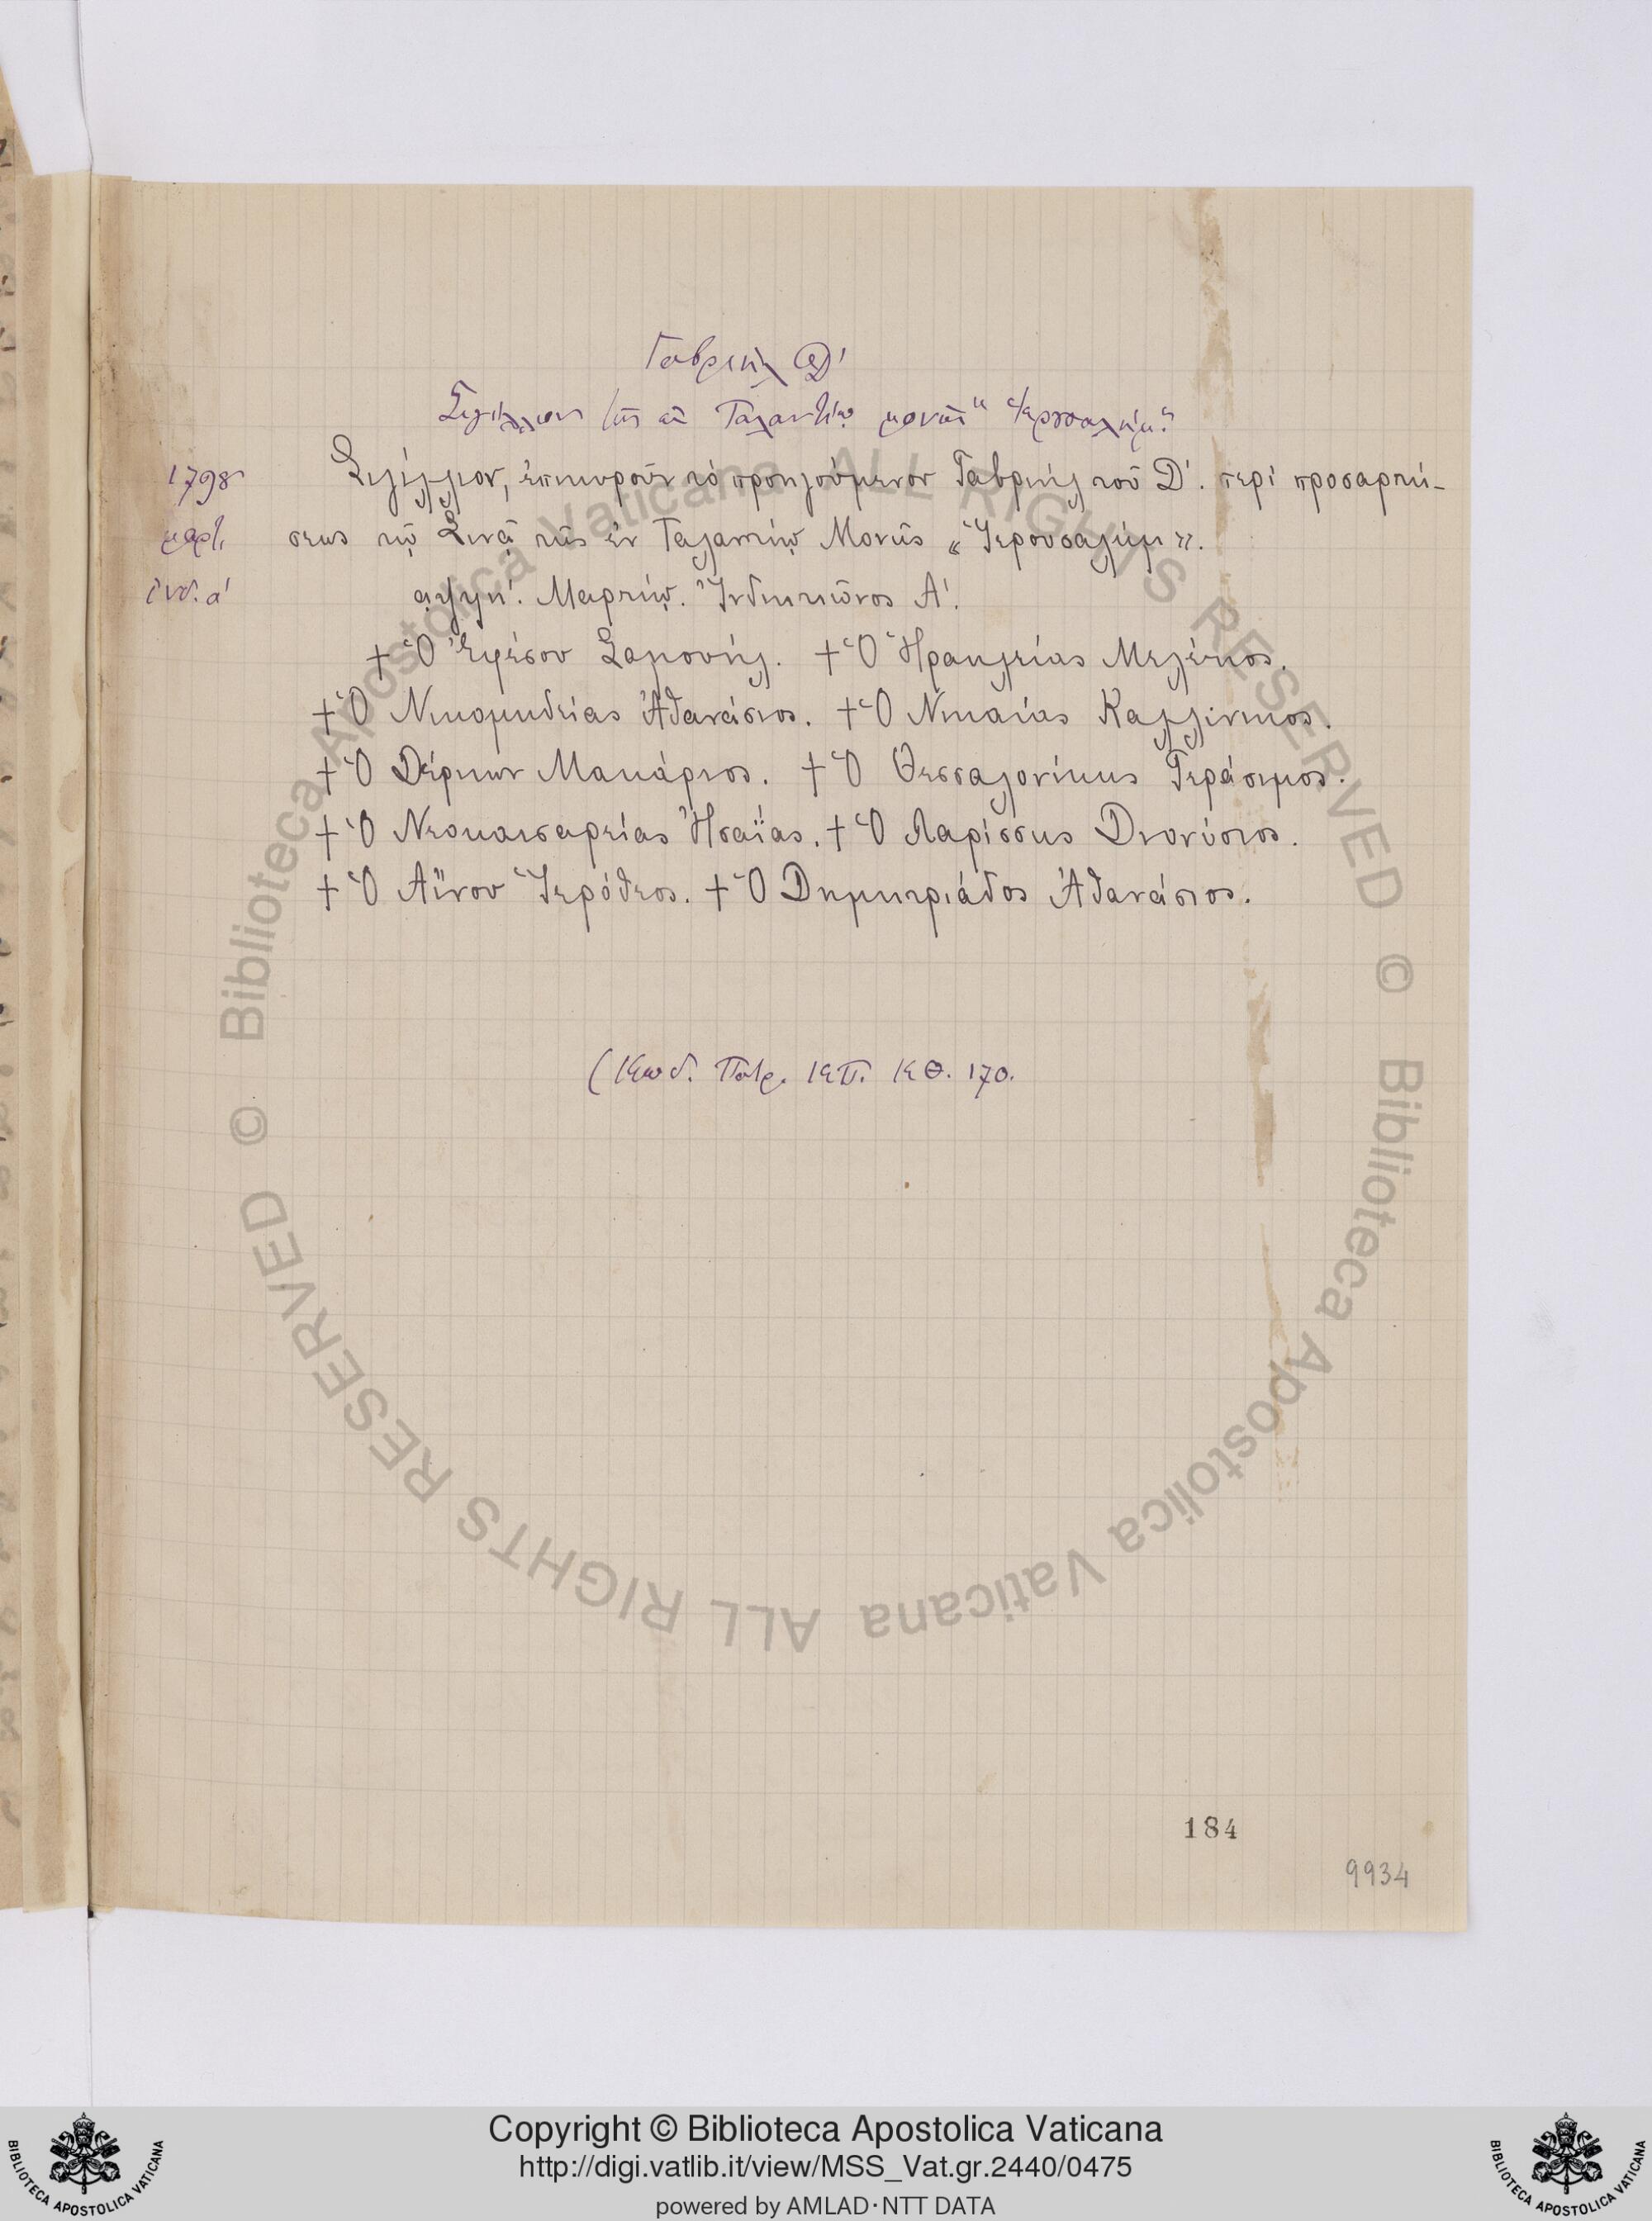 Γαβριὴλ Δ'
Σιγίλλιον τῆς ἐν Ταλαντίῳ μονῆς "Ἱερουσαλήμ."
1798 Σιγίλλιον, ἐπικυροῦν τό προηγούμενον Γαβριήλ τοῦ Δ'. περί προσαρτή-
μαρτ. σεως τῷ Σινᾷ τῆς ἐν Ταλαντίῳ Μονῆς «Ἱερουσαλήμ».
ἰνδ. α' αψϟη'. Μαρτίῳ. Ἰνδικτιῶνος Α'.
† Ὁ Ἐφέσου Σαμουήλ. † Ὁ Ἡρακλείας Μελέτιος.
† Ὁ Νικομηδείας Ἀθανάσιος. † Ὁ Νικαίας Καλλίνικος.
† Ὁ Δέρκων Μακάριος. † Ὁ Θεσσαλονίκης Γεράσιμος.
† Ὁ Νεοκαισαρείας Ἡσαΐας. † Ὁ Λαρίσσης Διονύσιος.
† Ὁ Αἴνου Ἱερόθεος. † Ὁ Δημητριάδος Ἀθανάσιος.
(Κωδ. Πατρ. ΚΠ. ΚΘ. 170.
184
9934
© Biblioteca Apostolica Vaticana ALL RIGHTS RESERVED © Biblioteca Apostolica Vaticana ALL RIGHTS RESERVED
Copyright © Biblioteca Apostolica Vaticana
http://digi.vatlib.it/view/MSS_Vat.gr.2440/0475
powered by AMLAD·NTT DATA
BIBLIOTECA APOSTOLICA VATICANA
BIBLIOTECA APOSTOLICA VATICANA